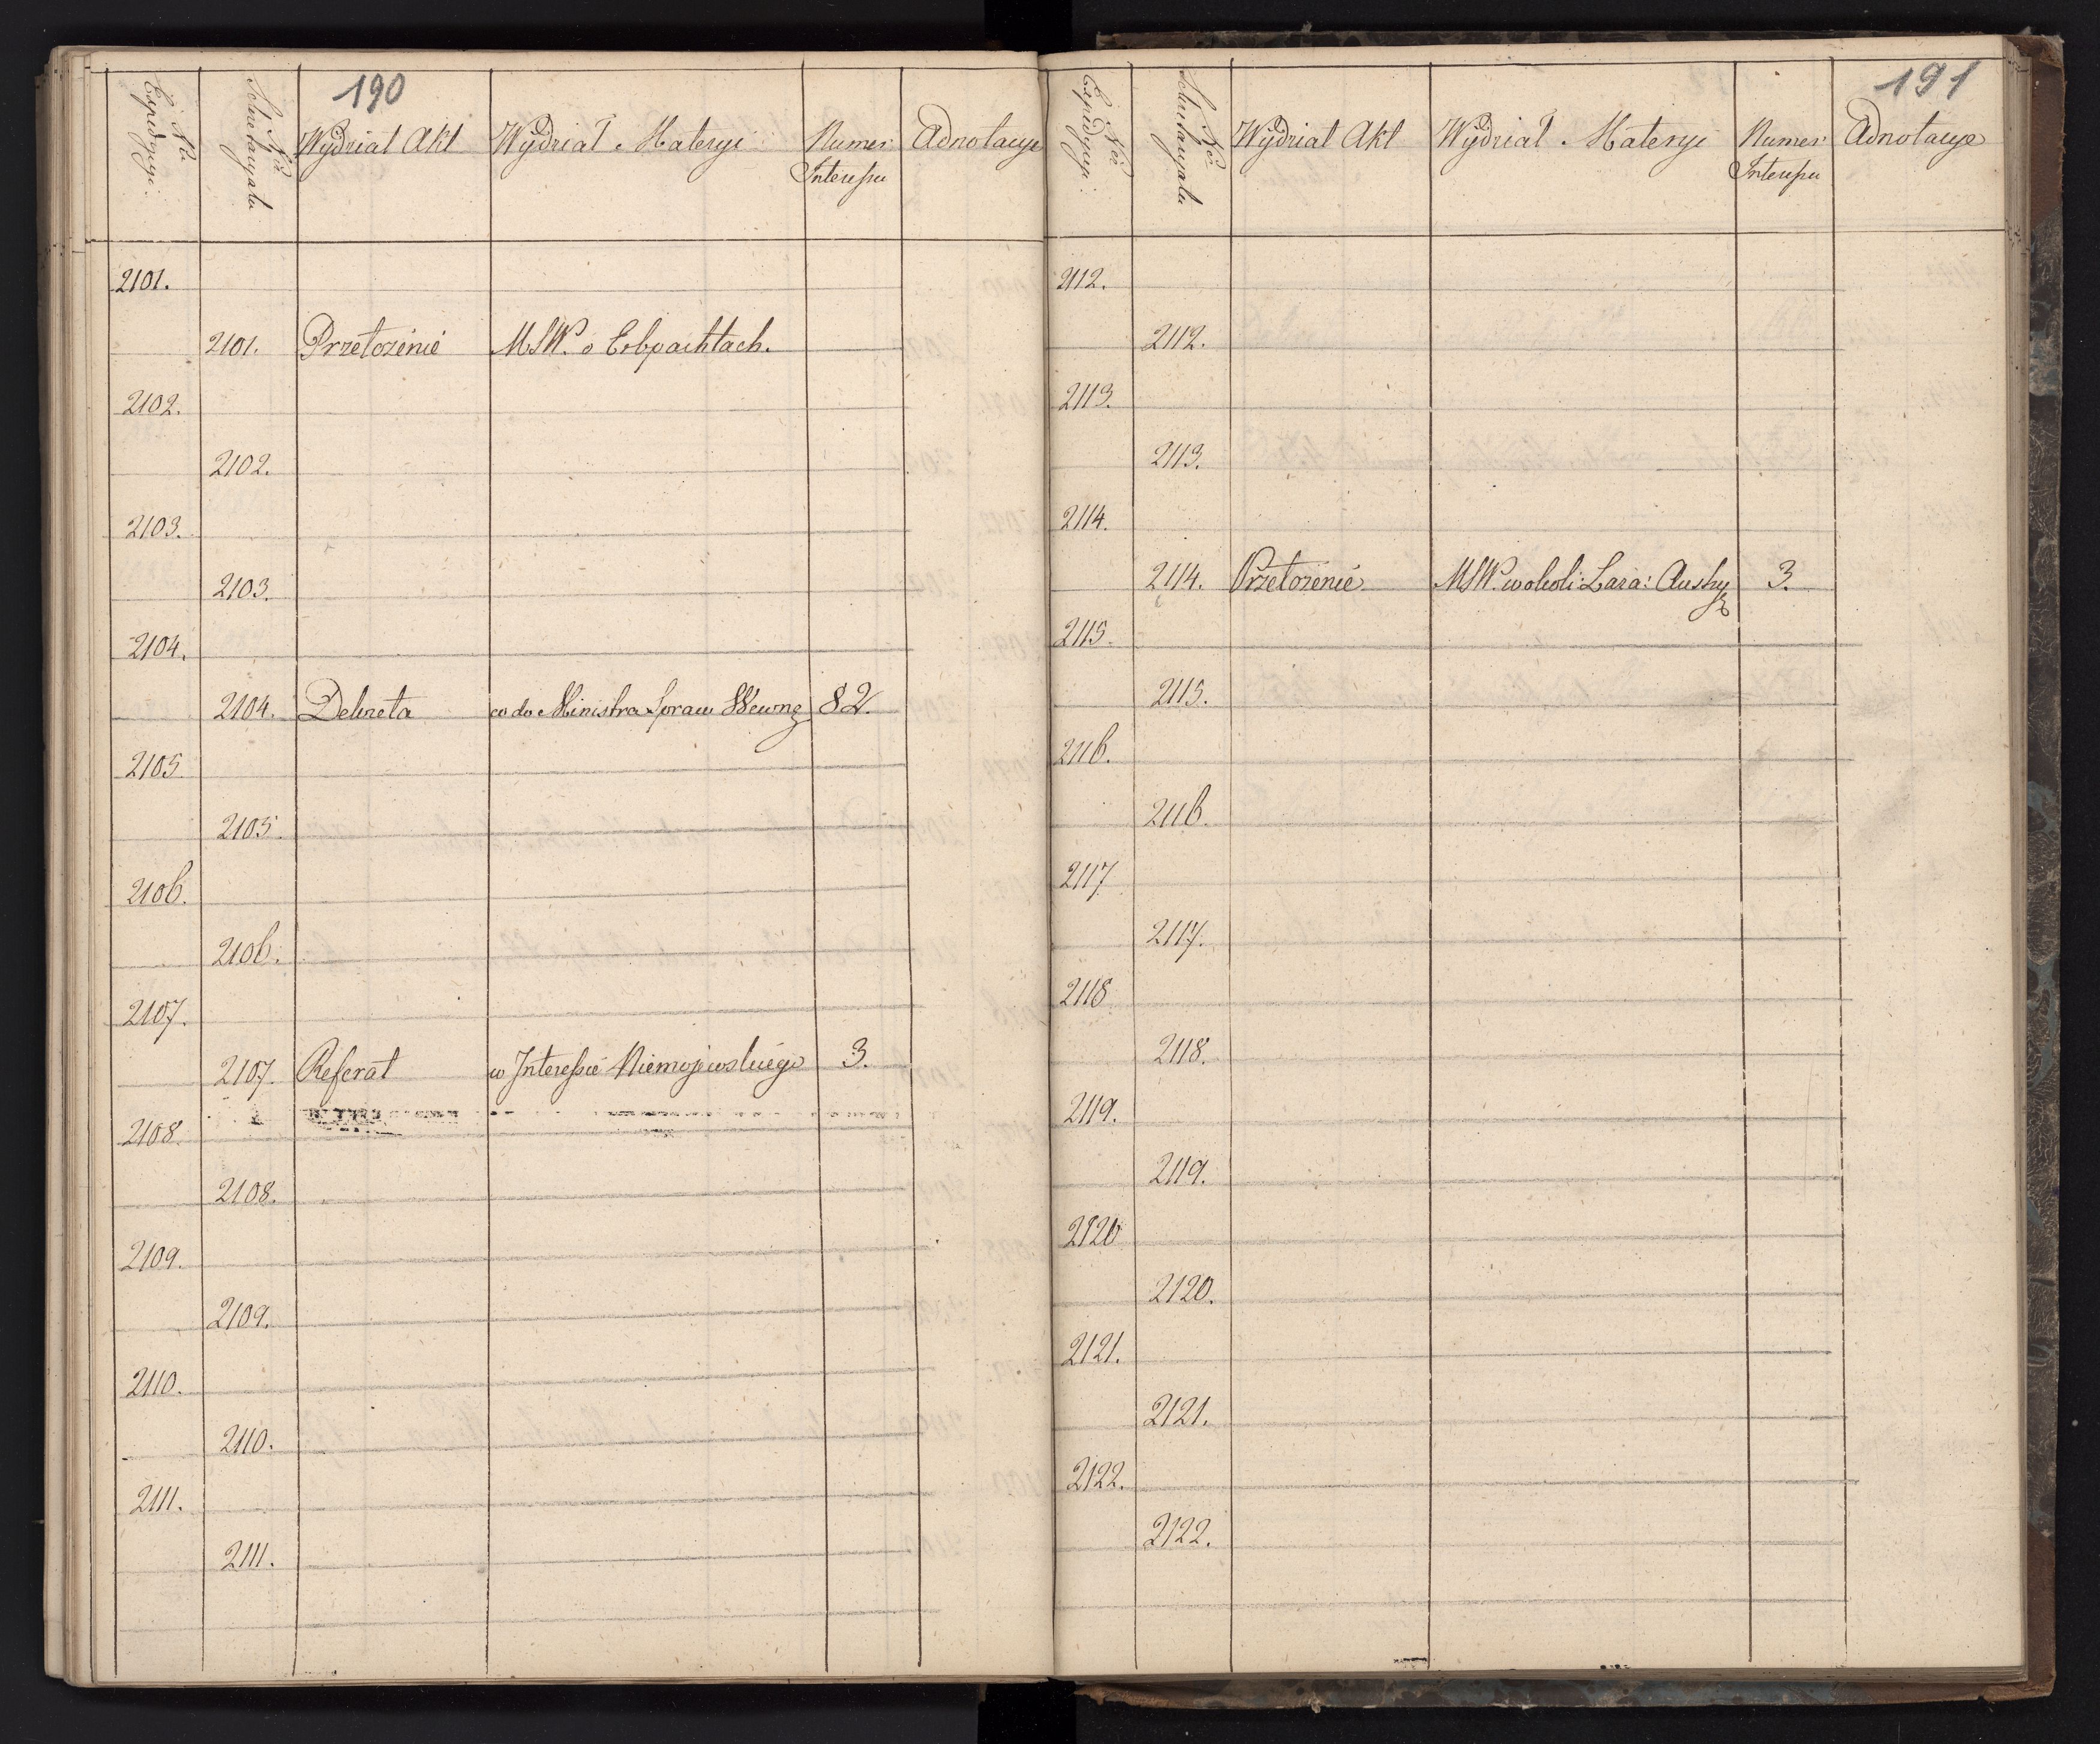 190
Nro Expedycyi.
Nro Sekretaryatu
Wydział Akt
Wydział Materyi
Numer Interessu
Adnotacye
2101.
2101. Przełożenié MSW. o Erbpachtach.
2102.
2102.
2103.
2103.
2104.
2104. Dekreta co do Ministra Spraw Wewnę 82.
2105
2105.
2106.
2106.
2107.
2107. Referat w Interessié Niemojewskiégo 3.
2108.
2108.
2109.
2109.
2110.
2110.
2111.
2111.
191
Nro Expedycyi.
Nro Sekretaryatu
Wydział Akt
Wydział Materyi
Numer Interessu
Adnotacye
2112.
2112.
2113.
2113.
2114.
2114. Przełożenié MSW. w okoli: Zara: 3.
2115.
2115.
2116.
2116.
2117
2117.
2118
2118.
2119.
2119.
2120
2120.
2121.
2121.
2122.
2122.